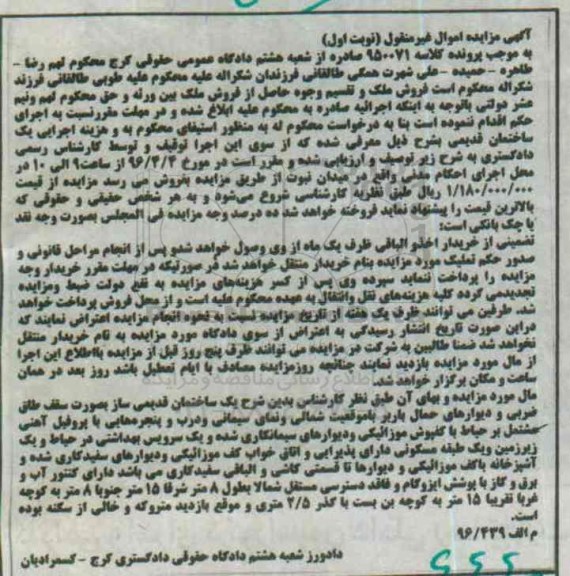 آگهی مزایده اموال غیرمنقول (نوبت اول)
به موجب پرونده کلاسه ۹۵۰۰۷۱ صادره از شعبه هشتم دادگاه عمومی حقوقی کرج محکوم لهم رضا -
طاهره - حمیده - علی شهرت همگی طالقانی فرزندان شکراله علیه محکوم علیه طوبی طالقانی فرزند
شکراله محکوم است فروش ملک و تقسیم وجوه حاصل از فروش ملک بین ورثه و حق محکوم لهم ونیم
عشر دولتی باتوجه به اینکه اجرائیه صادره به محکوم علیه ابلاغ شده و در مهلت مقررنسبت به اجرای
حکم اقدام ننموده است بنا به درخواست محکوم له به منظور استیفای محکوم به و هزینه اجرایی یک
ساختمان قدیمی بشرح ذیل معرفی شده که از سوی این اجرا توقیف و توسط کارشناس رسمی
دادگستری به شرح زیر توصیف و ارزیابی شده و مقرر است در مورخ ۹۶/۴/۴ از ساعت۹ الی ۱۰ در
محل اجرای احکام مدنی واقع در میدان نبوت از طریق مزایده بفروش می رسد مزایده از قیمت
۱/۱۸۰/۰۰۰/۰۰۰ ریال طبق نظریه کارشناسی شروع می‌شود و به هر شخص حقیقی و حقوقی که
بالاترین قیمت را پیشنهاد نماید فروخته خواهد شد ده درصد وجه مزایده فی المجلس بصورت وجه نقد
یا چک بانکی است:
تضمینی از خریدار اخذو الباقی ظرف یک ماه از وی وصول خواهد شدو پس از انجام مراحل قانونی و
صدور حکم تملیک مورد مزایده بنام خریدار منتقل خواهد شد در صورتیکه در مهلت مقرر خریدار وجه
مزایده را پرداخت ننماید سپرده وی پس از کسر هزینه‌های مزایده به نفع دولت ضبط ومزایده
تجدیدمی گردد کلیه هزینه‌های نقل وانتقال به عهده محکوم علیه است و از محل فروش پرداخت خواهد
شد. طرفین می توانند ظرف یک هفته از تاریخ مزایده نسبت به نحوه انجام مزایده اعتراض نمایند که
دراین صورت تاریخ انتشار رسیدگی به اعتراض از سوی دادگاه مورد مزایده به نام خریدار منتقل
نخواهد شد ضمنا طالبین به شرکت در مزایده می توانند ظرف پنج روز قبل از مزایده بااطلاع این اجرا
از مال مورد مزایده بازدید نمایند چنانچه روزمزایده مصادف با ایام تعطیل باشد روز بعد در همان
ساعت و مکان برگزار خواهد شد.
مال مورد مزایده و بهای آن طبق نظر کارشناس بدین شرح یک ساختمان قدیمی ساز بصورت سقف طاق
ضربی و دیوارهای حمال باربر باموقعیت شمالی ونمای سیمانی ودرب و پنجره‌هایی با پروفیل آهنی
مشتمل بر حیاط با کفپوش موزائیکی ودیوارهای سیمانکاری شده و یک سرویس بهداشتی در حیاط و یک
زیرزمین ویک طبقه مسکونی دارای پذیرایی و اتاق خواب کف موزائیکی ودیوارهای سفیدکاری شده و
آشپزخانه باکف موزائیکی و دیوارها تا قسمتی کاشی و الباقی سفیدکاری می باشد دارای کنتور آب و
برق و گاز با پوشش ایزوگام و فاقد دسترسی مستقل شمالا بطول ۸ متر شرقا ۱۵ متر جنوبا ۸ متر به کوچه
غربا تقریبا ۱۵ متر به کوچه بن بست با گذر ۲/۵ متری و موقع بازدید متروکه و خالی از سکنه بوده
است.
م الف ۹۶/۴۳۹
دادورز شعبه هشتم دادگاه حقوقی دادگستری کرج - کسمرادیان